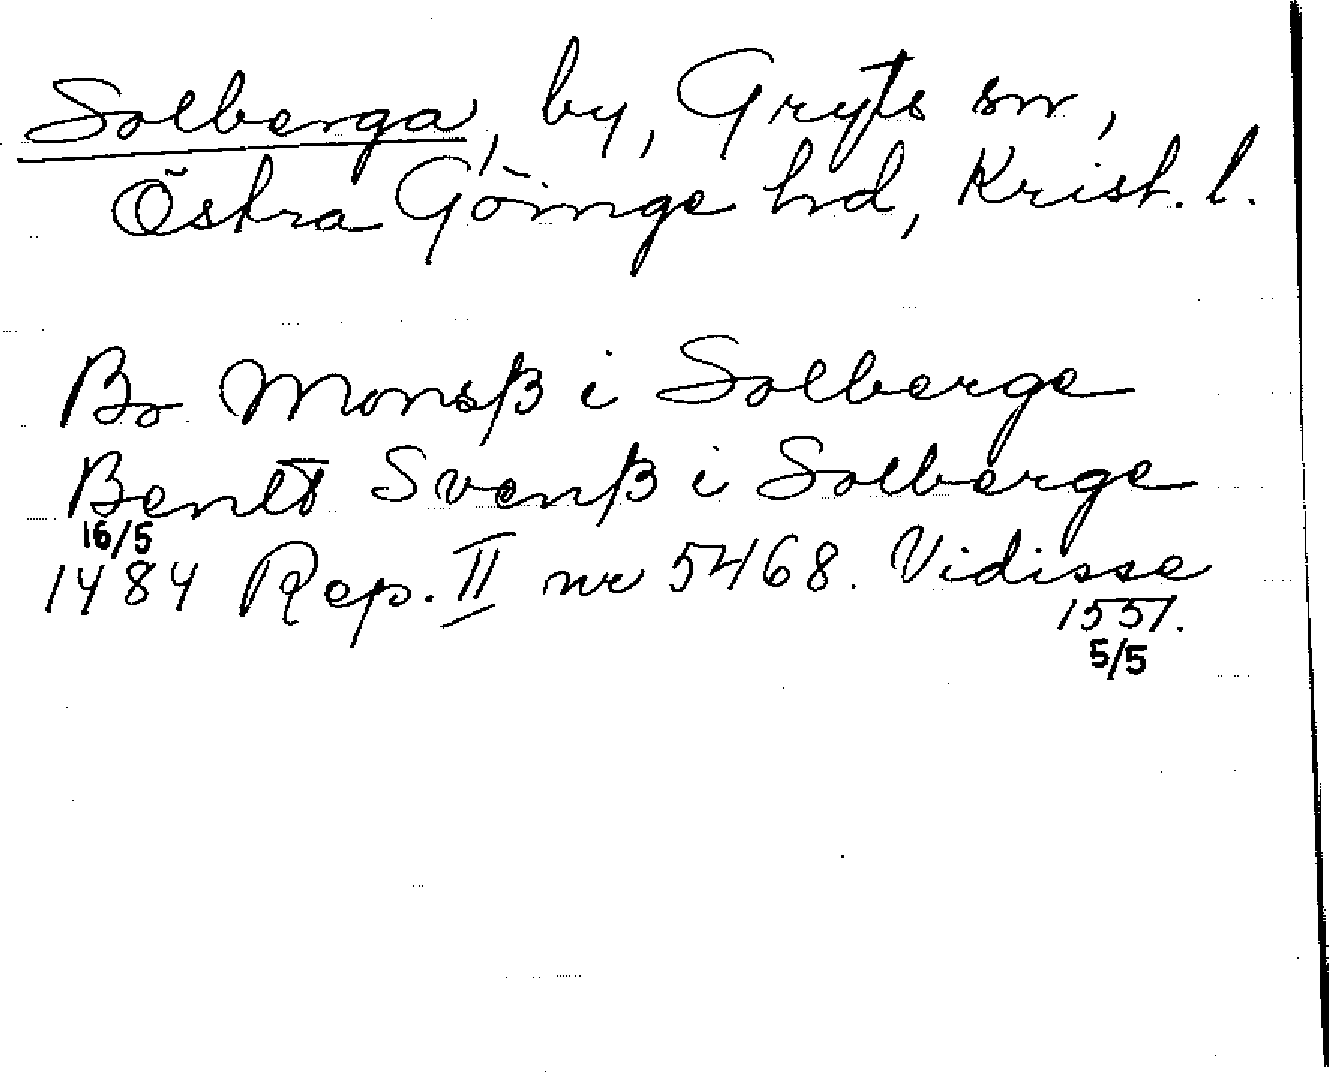 Solberga, by, Gryts sn,
Östra Göinge hd, Krist. l.
Bo Monsß i Solberge
Bentt Svenß i Solberge
16/5
1484 Rep. II nr 5468. Vidisse
1551.
5/5